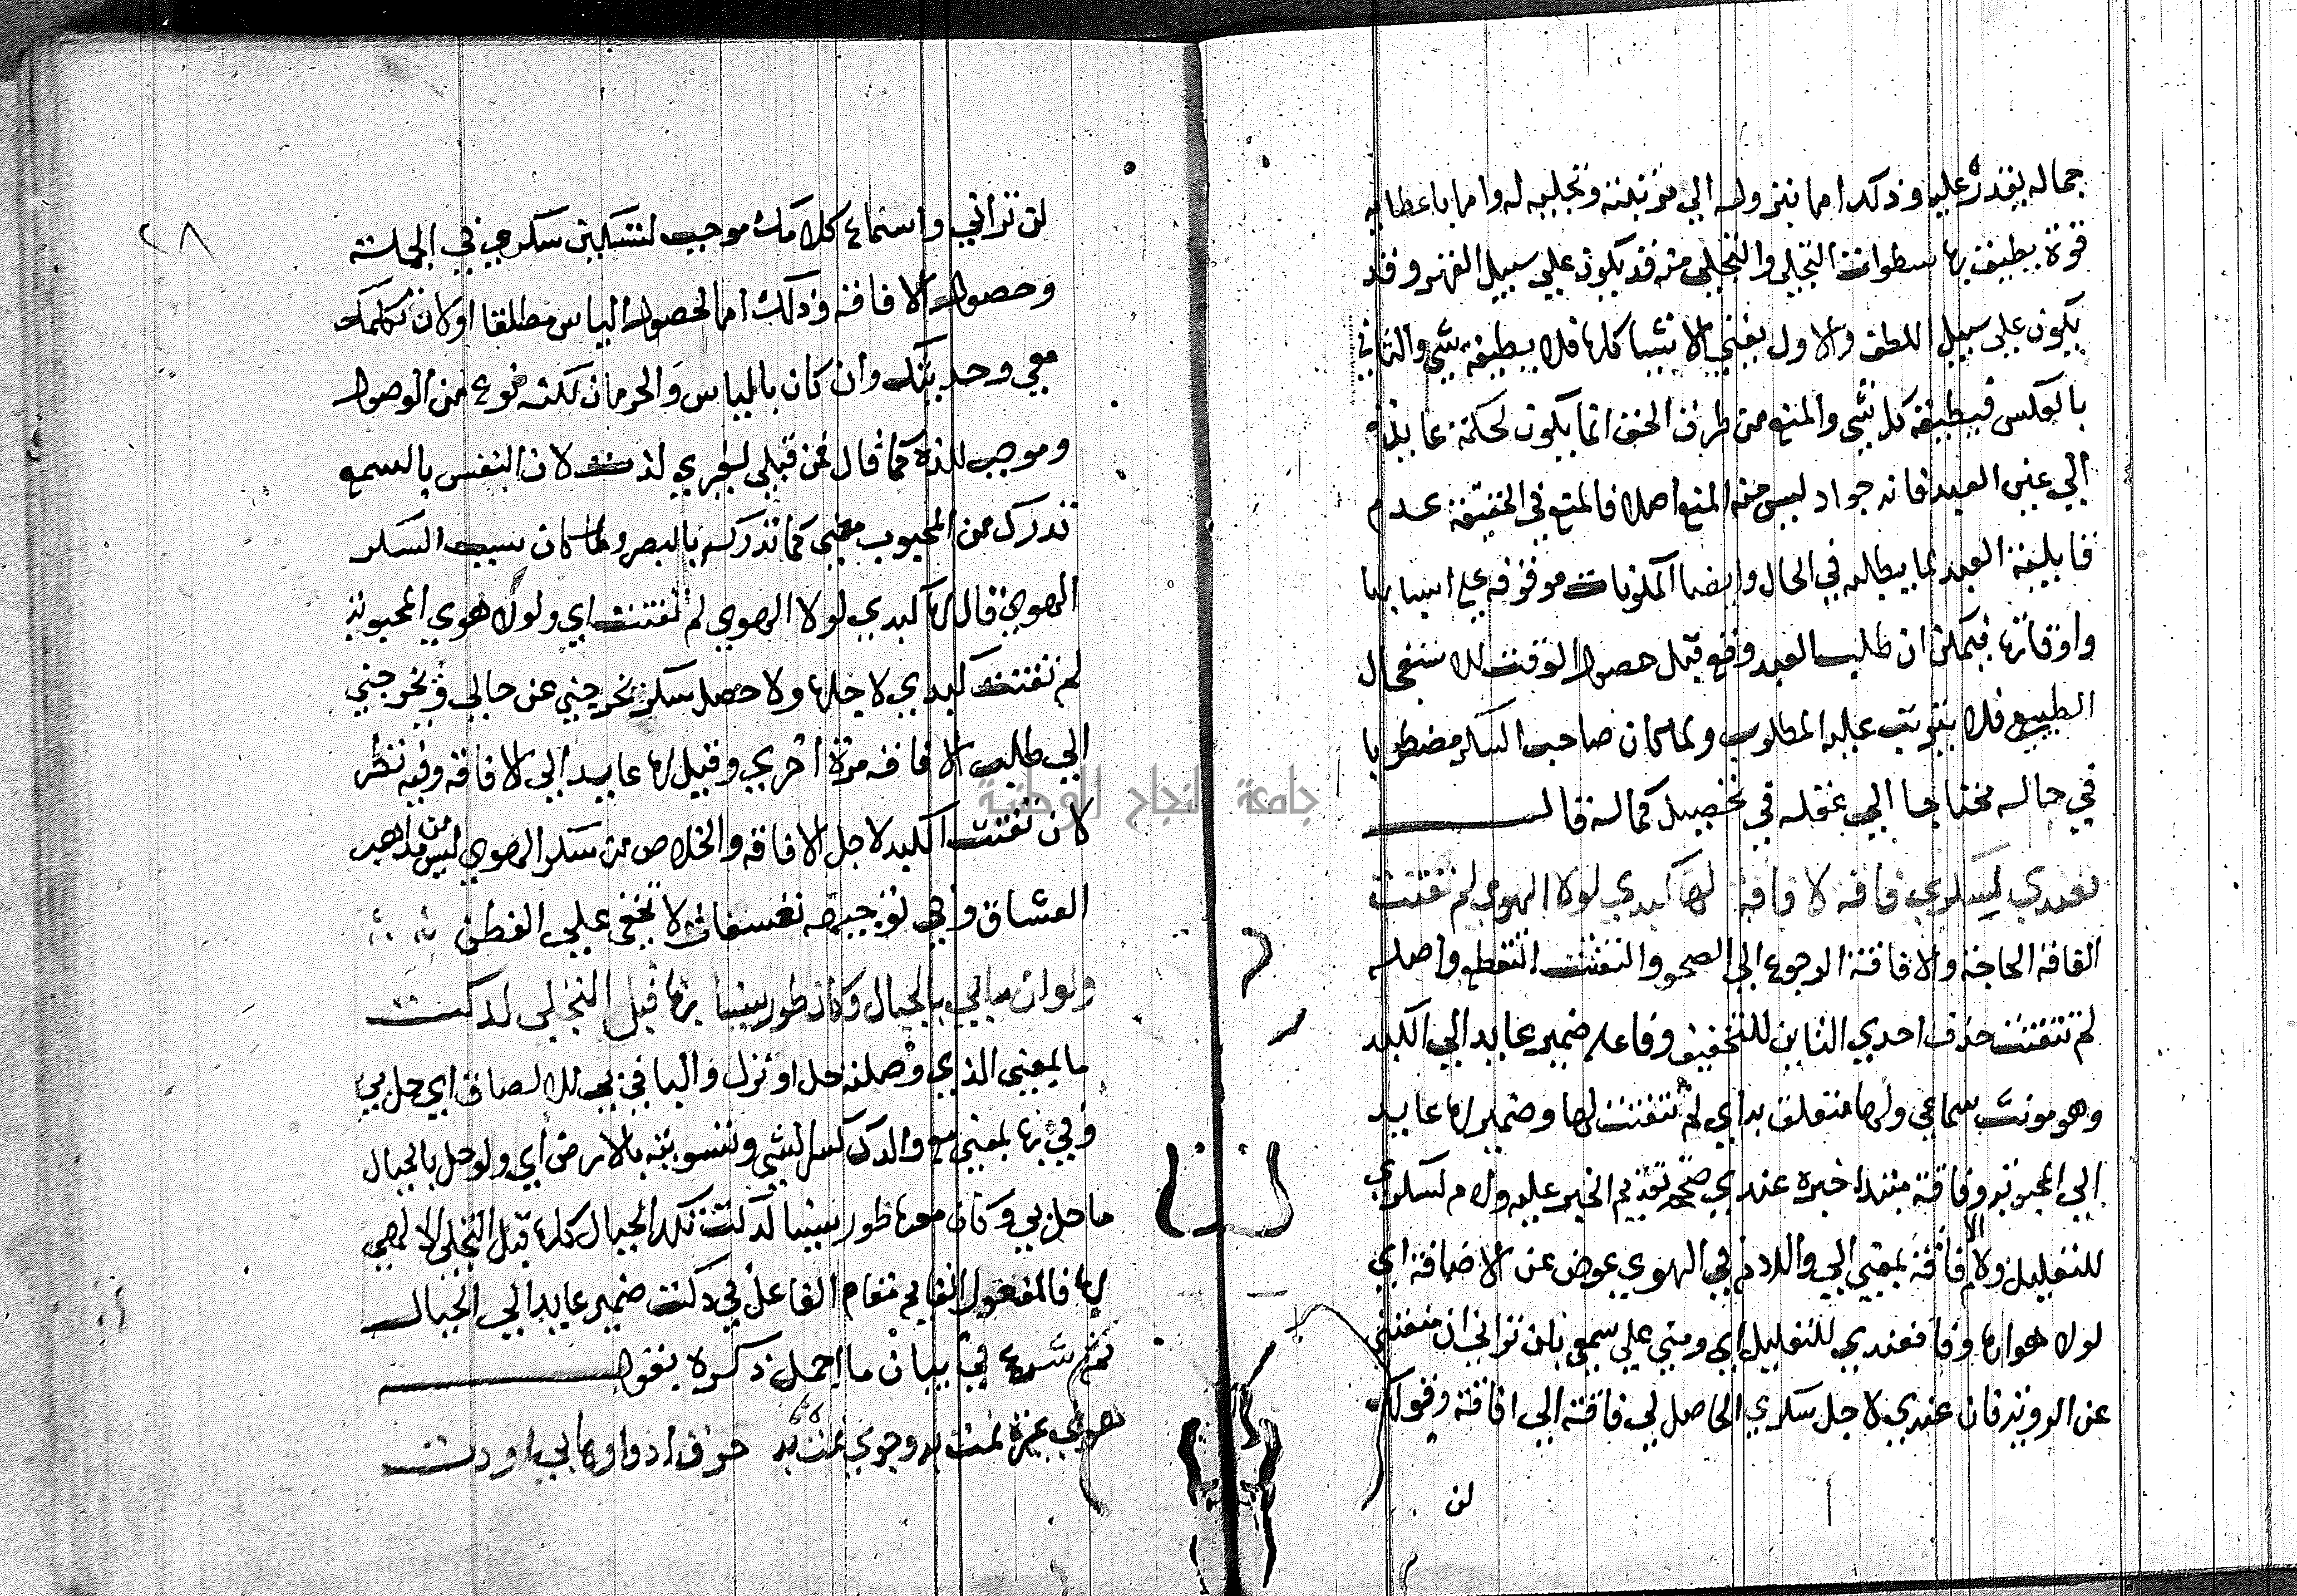 جماله يقدر عليه وذلك اما بنزوله الي مرتبته وتجليه له واما باعطايه
قوة يطيق بها سطوات التجلي والتجلي منه قد يكون علي سبيل القهر وقد
يكون علي سبيل اللطف والاول يفني الاشيا كلها فلا يطيقه شي والثاني
بالعكس فيطيقه كل شي والمنع من طرف الحق انما يكون لحكمة عايدة
الي عين العبد فانه جواد ليس منه المنع اصلا فالمنع في الحقيقة عدم
قابلية العبد لما يطالبه في الحال وايضا المكونات موقوفه علي اسبابها
واوقاتها فيمكن ان طلب العبد وقع قبل حصول الوقت للاستعجال
الطبيعي فلا يترتب عليه المطلوب ولما كان صاحب السكر مضطربا
في حاله محتاجا الي عقله في تحصيل كماله قال
فعندي لسكري فاقه لافاقة لها كبدي لولا الهوي لم تفتت
الفاقه الحاجة والافاقة الرجوع الي الصحو والتفتت التقطع واصله
لم تتفتت حذف احدي التاين للتخفيف وفاعله ضمير عايد الي الكبد
وهو مونث سماعي ولها متعلق به اي لم تتفتت لها وضمير لها عايد
الي المحبوبة وفاقة مبتدا خبره عندي صححه تقديم الخبر عليه ولام لسكري
للتعليل ولام الافاقة بمعني الي واللام في الهوي عوض عن الاضافة اي
لولا هواها وفا فعندي للتعليل اي ومني علي سمعي بلن تراني ان منعتني
عن الروية فان عندي لاجل سكري الحاصل لي فاقة الي افاقة وقولك
لن
٢٨
لن تراني واستماع كلامك موجب لتسكين سكري في الجملة
وحصول الافاقه وذلك اما لحصول الياس مطلقا او لان تكلمك
معي وحديثك وان كان بالياس والحرمان لكنه نوع من الوصول
وموجب للذة كما قال فمن قبلي لغيري لذت لان النفس بالسمع
تدرك من المحبوب معني كما تدركه بالبصر ولما كان سبب السكر
الهوي قال لها كبدي لولا الهوي لم تفتت اي ولولا هوي المحبوبة
لم تفتت كبدي لاجلها ولا حصل سكر يخرجني عن حالي ويحوجني
الي طلب الافاقه مرة اخري وقيل لها عايد الي الافاقة وفيه نظر
لان تفتت الكبد لاجل الافاقه والخلاص من سكر الهوي ليس من مذاهب
العشاق وفي توجيهه تعسفات لا تخفي علي الفطن
ولو ان ما بي بالجبال وكان طور سينا بها قبل التجلي لدكت
ما بمعني الذي وصلته حل او نزل والبا في بي للالصاق اي حل بي
وفي بها بمعني مع والدك كسر الشي وتسويته بالارض اي ولو حل بالجبال
ما حل بي وكان معها طور سينا لدكت تلك الجبال كلها قبل التجلي الالهي
لها فالمفعول القايم مقام الفاعل في دكت ضمير عايد الي الجبال
ثم شرع في بيان ما اجمل ذكره بقوله
هوي عبرة نمت به وجوي نمت به حرق ادواوها بي اودت
جامعة النجاح الوطنية